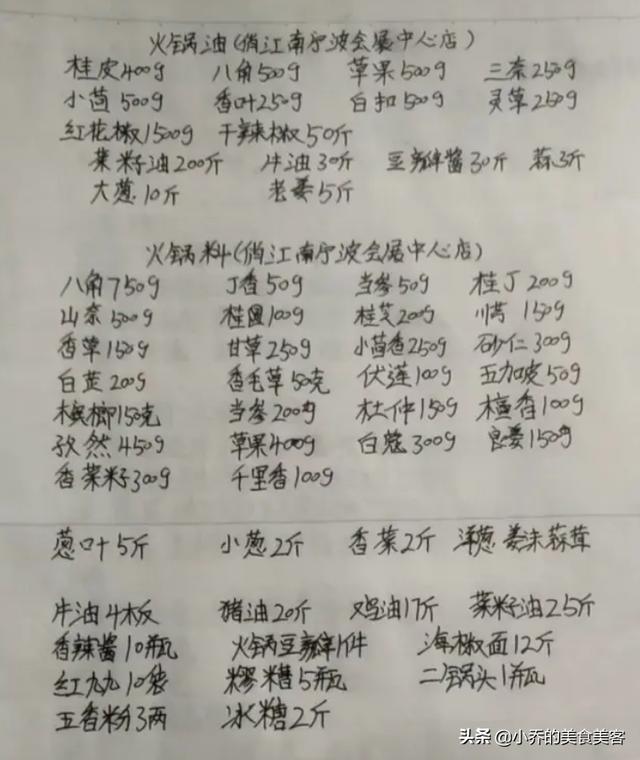 火锅油(俏江南宁波会展中心店)
桂皮400g 八角500g 草果500g 三奈250g
小茴500g 香叶250g 白扣500g 灵草250g
红花椒1500g 干辣椒50斤
菜籽油200斤 牛油30斤 豆瓣酱30斤 蒜3斤
大葱10斤 老姜5斤
火锅料(俏江南宁波会展中心店)
八角750g 丁香50g 当参50g 桂丁200g
山奈500g 桂圆100g 桂芝200g 川芎150g
香草150g 甘草250g 小茴香250g 砂仁300g
白芷200g 香毛草50克 伏莲100g 五加皮50g
槟榔150克 当参200g 杜仲150g 檀香100g
孜然450g 草果400g 白蔻300g 良姜150g
香菜籽300g 千里香100g
葱叶5斤 小葱2斤 香菜2斤 洋葱 姜末蒜茸
牛油4板 猪油20斤 鸡油17斤 菜籽油25斤
香辣酱10瓶 火锅豆瓣1件 海椒面12斤
红九九10袋 糟5瓶 二锅头1瓶
五香粉3两 冰糖2斤
头条 @小乔的美食美客